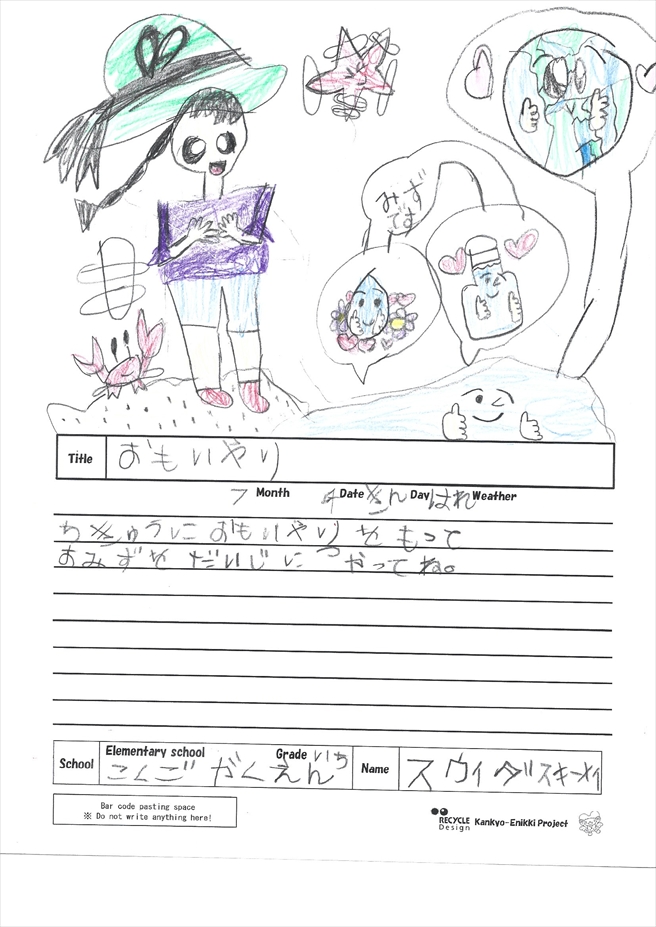 みず
です
Title おもいやり
7 Month 4 Date きん Day はれ Weather
ちきゅうに おもいやり を もって
おみずを だいじに つかってね。
Elementary school
Grade いち
School こくご がくえん
Name スウィダ スキーメイ
Bar code pasting space
※ Do not write anything here!
RECYCLE
Design
Kankyo-Enikki Project